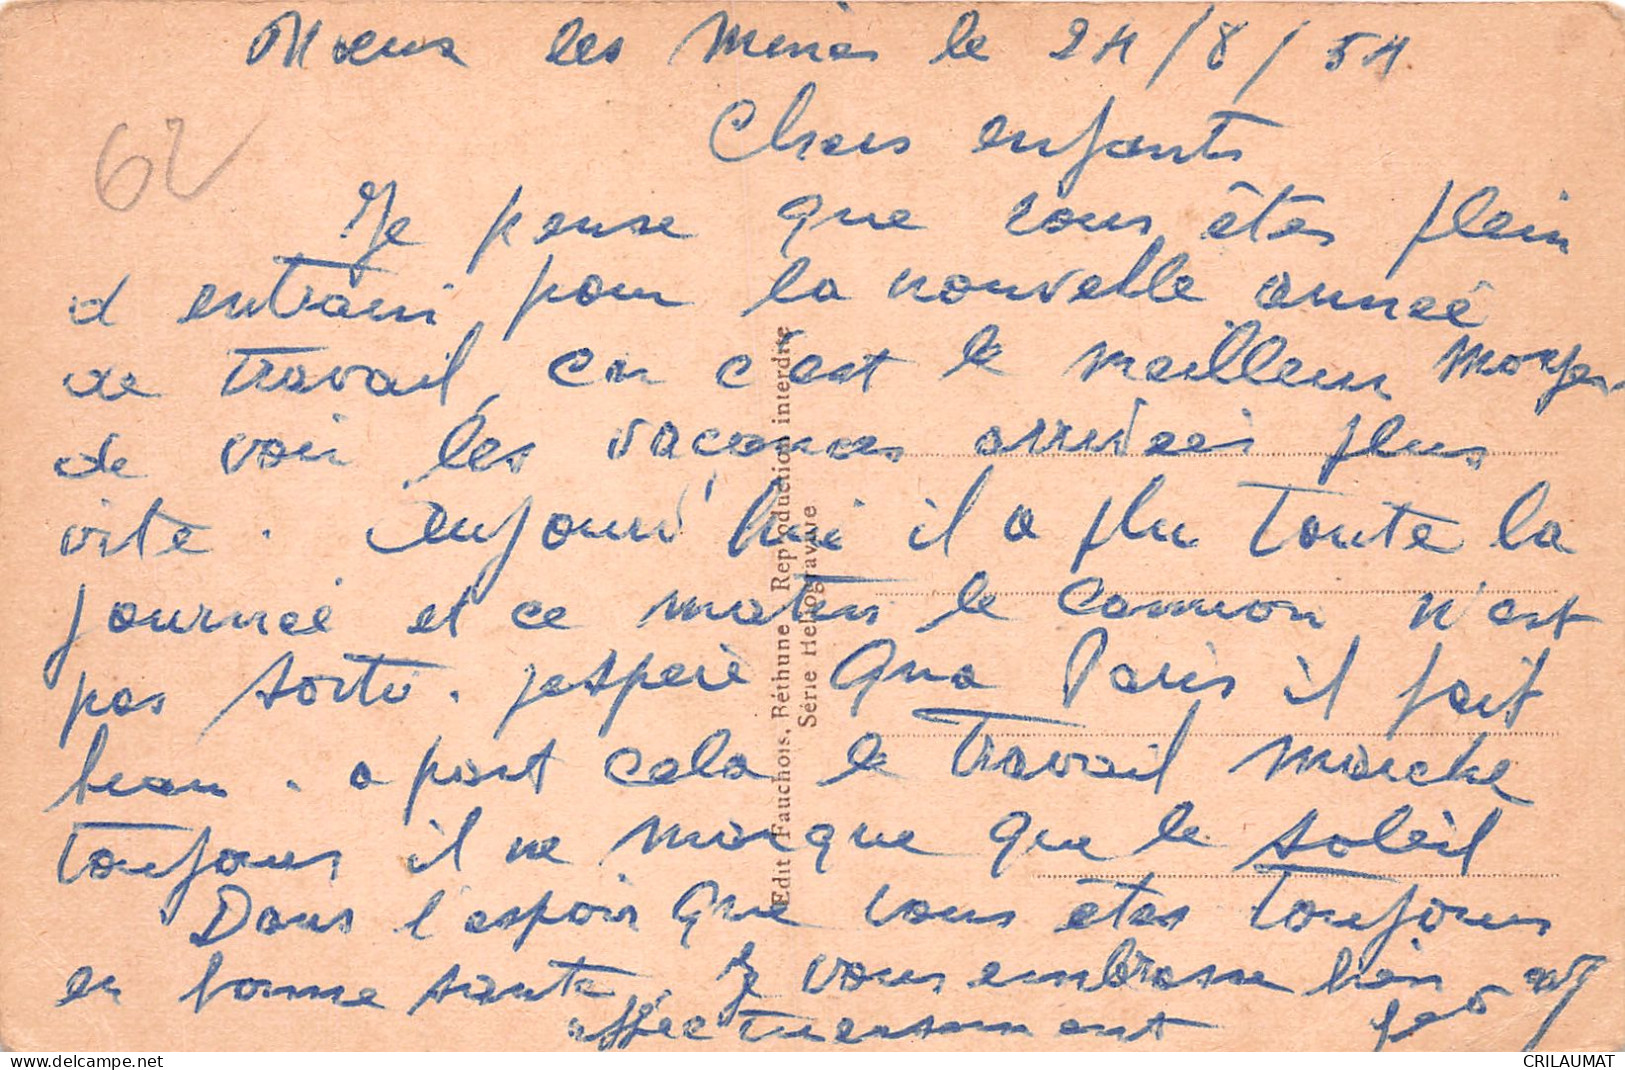 Nœux les Mines le 24/8/54
62
Chers enfants
Je pense que vous êtes plein
d entrain pour la nouvelle année
de travail, car c'est le meilleur moyen
de voir les vacances arrivées plus
vite. Aujourd'hui il a plu toute la
journée et ce matin le camion n'est
pas sorti. j'espère qu'a Paris il fait
beau. a part cela le travail marche
toujours il ne manque que le soleil
Dans l'espoir que vous etes toujours
en bonne santé, Je vous embrasse bien
affectueusement
Edit Fauchois, Béthune Reproduction interdite
Série Heliogravue
www.delcampe.net
CRILAUMAT